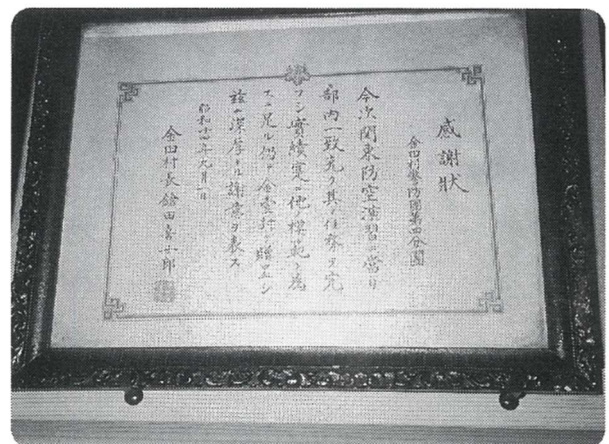 感謝狀
金田村警防團第四分團
今次関東防空演習ニ當リ
部内一致克ク其ノ任務ヲ完
フシ實績寔ニ他ノ模範ト為
スニ足ル仍テ金壹封ヲ贈呈シ
茲ニ深厚ナル謝意ヲ表ス
昭和十四年九月一日
金田村長鎗田喜十郎